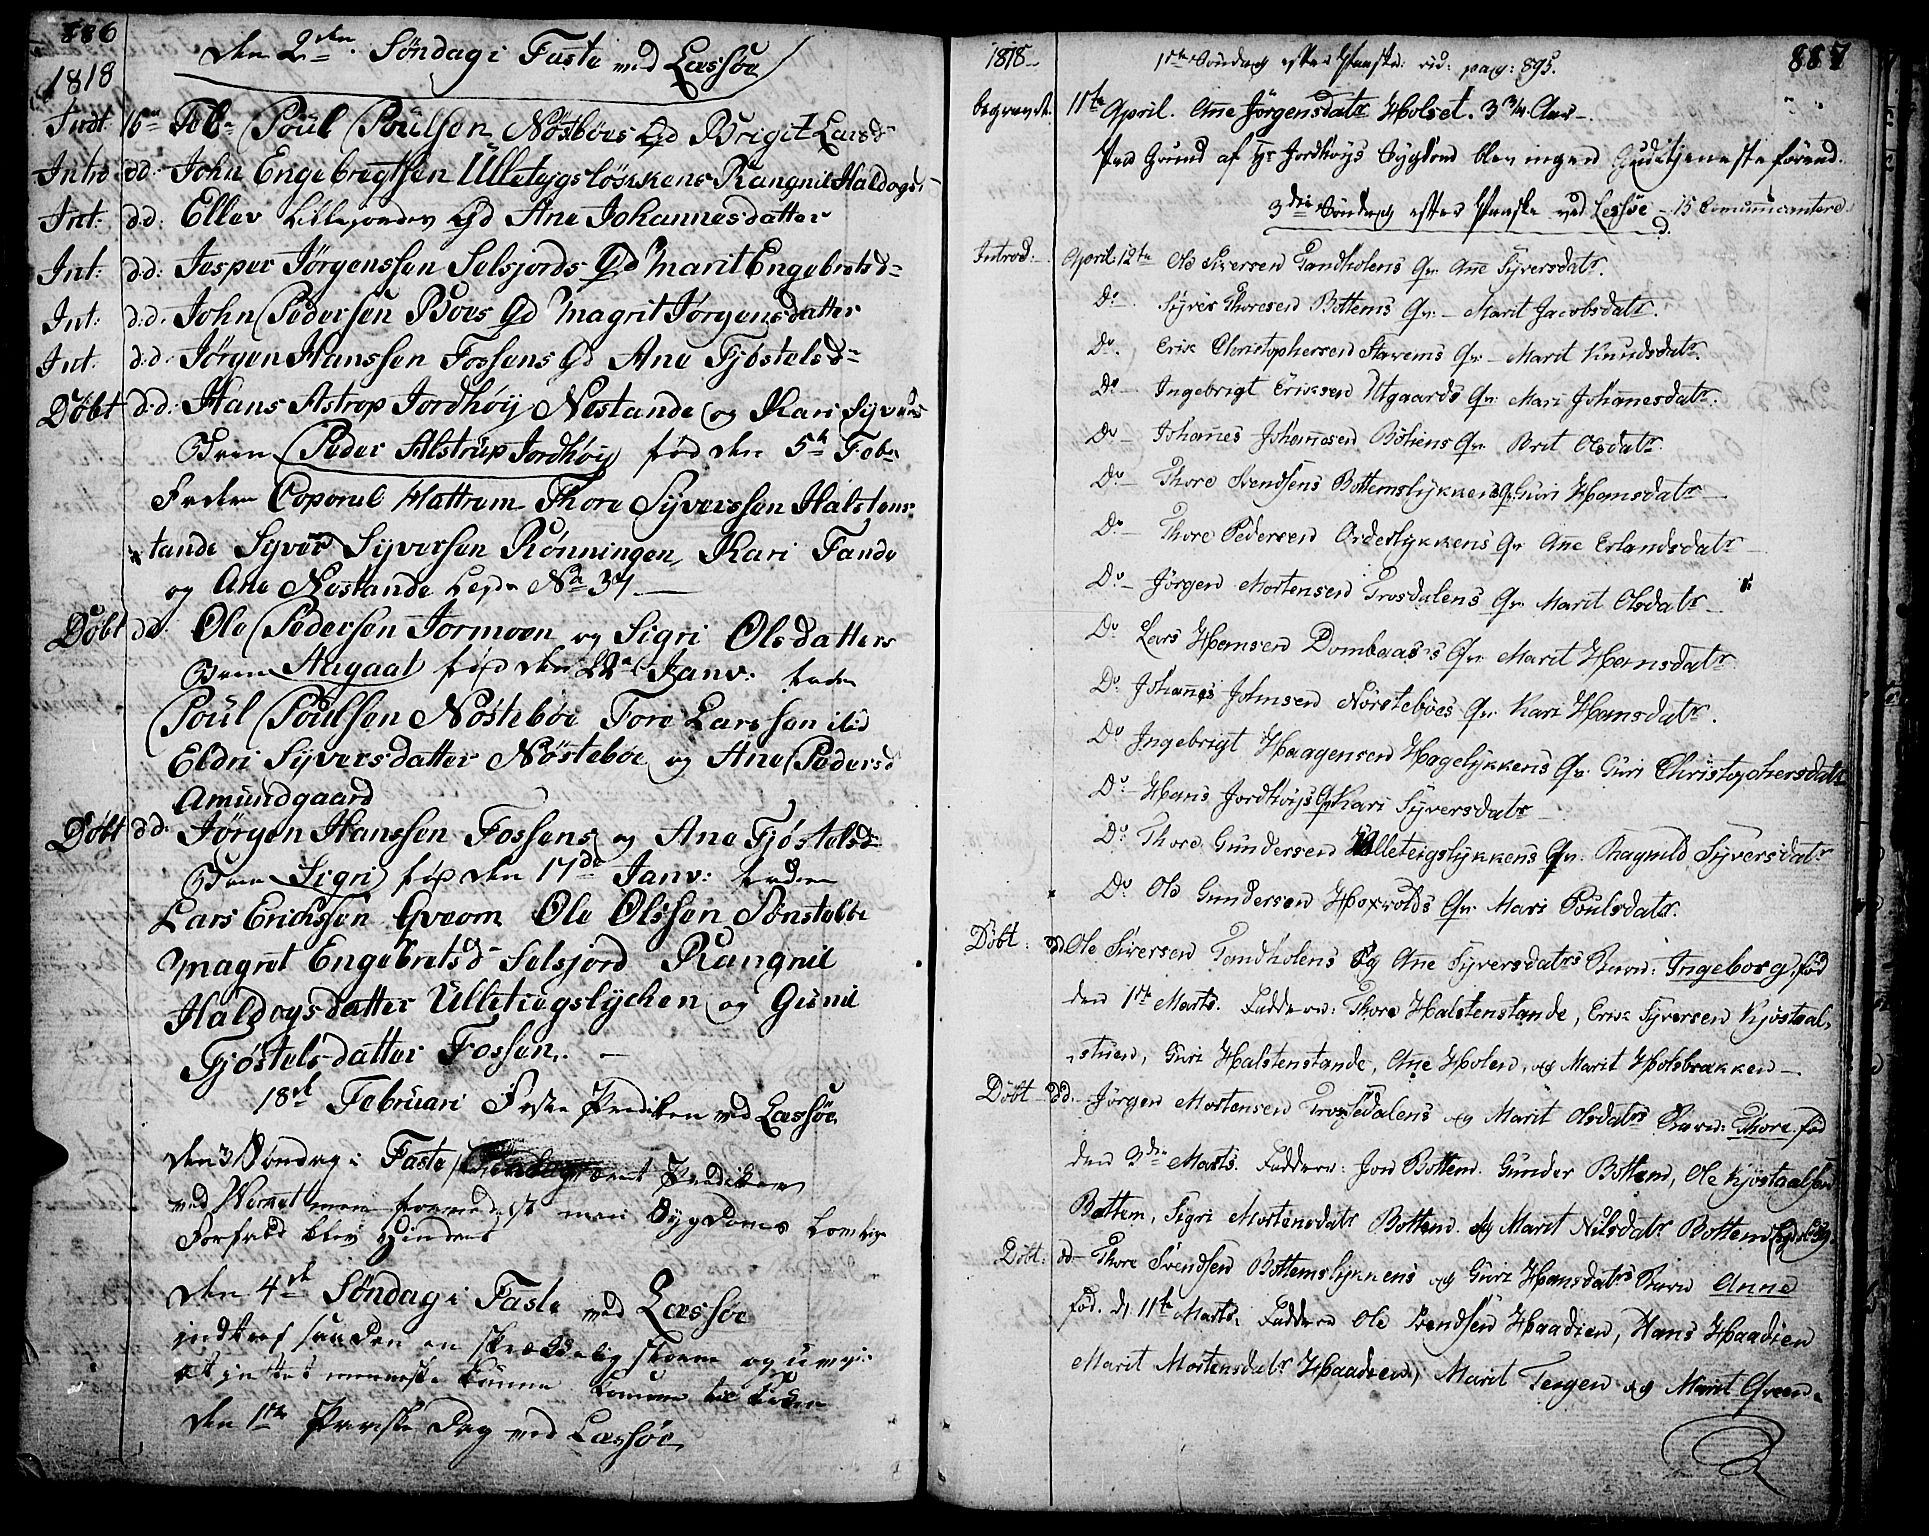 886
1818
Den 2den Söndag i Faste med Læssöe
Indt: 15de Feb. Poul Poulsen Nöstböes Qd Brigit Larsd
Intro dd: John Engebregtsen Ulletejgslökkens Rangnil Haldogsd
Int: d:d: Ellev Lillejorden Qd Ane Johannesdatter
Int: d:d: Jesper Jörgenssen Selsjords Qd Marit Engebretsd
Int: d:d. John Pedersen Boes Qd Magrit Jörgensdatter
Int. d:d: Jörgen Hanssen Fossens Qd Ane Fjöstelsd
Döbt d:d: Hans Astrop Jordhöy Nestande og Kari Syvers
Barn Peder Alstrup Jordhöy föd den 5te Feb
Fadere Coporal Hattrem Thore Syverssen Halstens
tande Syver Syversen Rönningen, Kari Tande
og Ane Nestande
Döbt dd: Ole Pedersen Jormoen og Sigri Olsdatters
Barn Aagaat föd den Janv:
Poul Poulsen Nösteböe Tore Larssen ibid
Eldri Syversdatter Nösteböe og Ane Pedersd
Amundgaard
Döbt d:d: Jörgen Hanssen Fossens og Ane Fjöstelsd
Barn Sigri föd den 17de Janv:
Lars Erichssen Qveom Ole Olssen Sönstebö
Magret Engebretsd Selsjord Rangnil
Haldogsdatter Ulletejgslychen og Gunil
Fjöstelsdatter Fossen. —
18de Februari Faste Prediken med Læssöe
Den 3 Söndag i Faste Prediken
med men formedelst min Sygdoms
Forfald blev Hindret
Den 4de Söndag i Faste med Læssöe
indtraf saadan en skrækkelig storm og
at intet menneske kunne komme til Kirken
Den 1ste Paaske Dag med Læssöe
1818
1ste Söndag efter Paaske: vid: pag: 895.
887
begravet. 11te April. Ane Jörgensdatr Holset. 3 3/4 Aar —
Paa Grund af Hr Jordhöys Sygdom blev ingen Gudstjeneste forend.
3die Söndag efter Paaske ved Lessöe — 15 Comunicantere.
Introd: April 12te Ole Siversen Tandholens Qv. Ane Syversdatr.
Do — Syver Thoresen Bottems Qv — Marit Jacobsdatr.
Do. Erik Christophersen Stavems Qv — Marit Knudsdatr.
Do — Ingebrigt Eriksen Utgaards Qv: Mari Johanesdatr.
Do — Johanes Johanesen Böhens Qv Brit Olsdatr.
Do — Thore Svendsens Bottemslykkens Qv: Guri Hansdatr —
Do — Thore Pedersen Ordeslykkens Qv Ane Erlandsdatr —
Do — Jörgen Mortensen Trosdalens Qv. Marit Olsdatr —
Do Lars Hansen Dombaas's Qv Marit Hansdatr
Do Johanes Johnsen Nörsteböes Qv Kari Hansdatr.
Do Ingebrigt Haagensen Hagelykkens Qv. Guri Christophersdatr
Do — Hans Jordhöys Qv Kari Syversdatr —
Do Thore Gundersen Ulleteigslykkens Qv. Ragnild Syversdatr
Do Ole Gundersen Hoxvolds Qv. Mari Poulsdatr.
Döbt: dd. Ole Siversen Tandholens og Ane Syversdatrs Barn: Ingeborg, föd
den 1ste Marts. Faddere: Thore Halstenstande, Erik Syversen Kjöstaal-
stuen, Guri Halstenstande, Ane Holen, og Marit Holsbrækken —
Döbt dd. — Jörgen Mortensen Trosdalens og Marit Olsdatrs Barn: Thore föd
den 3die Marts. Faddere: Jon Bottem. Gunder Bottem, Ole Kjöstaalsen
Bottem, Sigri Mortensdatr Bottem. og Marit Nilsdatr Bottem
Döbt: dd — Thore Svendsen Bottemslykkens og Guri Hansdatrs Barn Anne
föd. d. 11te Marts. Faddere Ole Svendsen Haadien, Hans Haadien
Marit Mortensdatr Haadien, Marit Teigen og Marit Qveen.